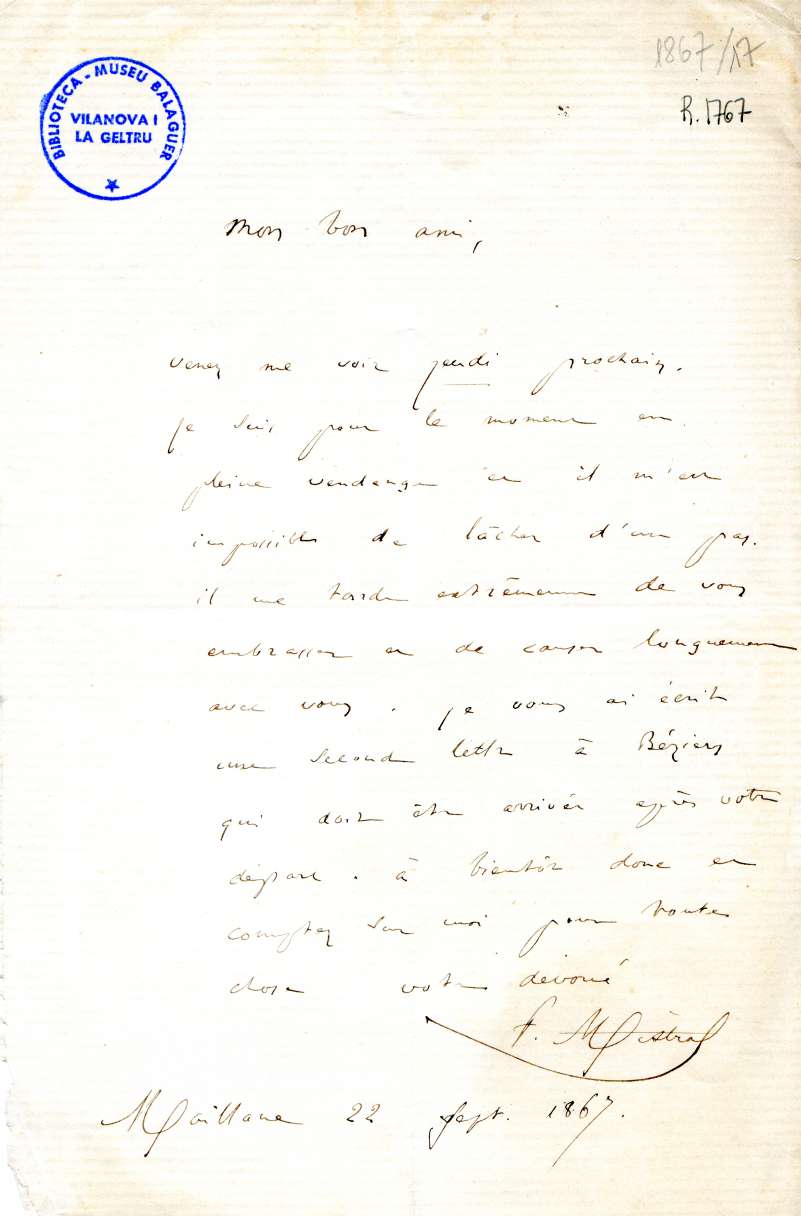 1867/17
R. 1767
BIBLIOTECA - MUSEU BALAGUER
VILANOVA I
LA GELTRU
Mon bon ami,
venez me voir jeudi prochain.
je suis pour le moment en
pleine vendange et il m'est
impossible de lâcher d'un pas.
il me tarde extrêmement de vous
embrasser et de causer longuement
avec vous. je vous ai écrit
une seconde lettre à Béziers
qui doit être arrivée après votre
départ. à bientôt donc et
comptez sur moi pour toute
chose votre dévoué
F. Mistral
Maillane 22 sept. 1867.